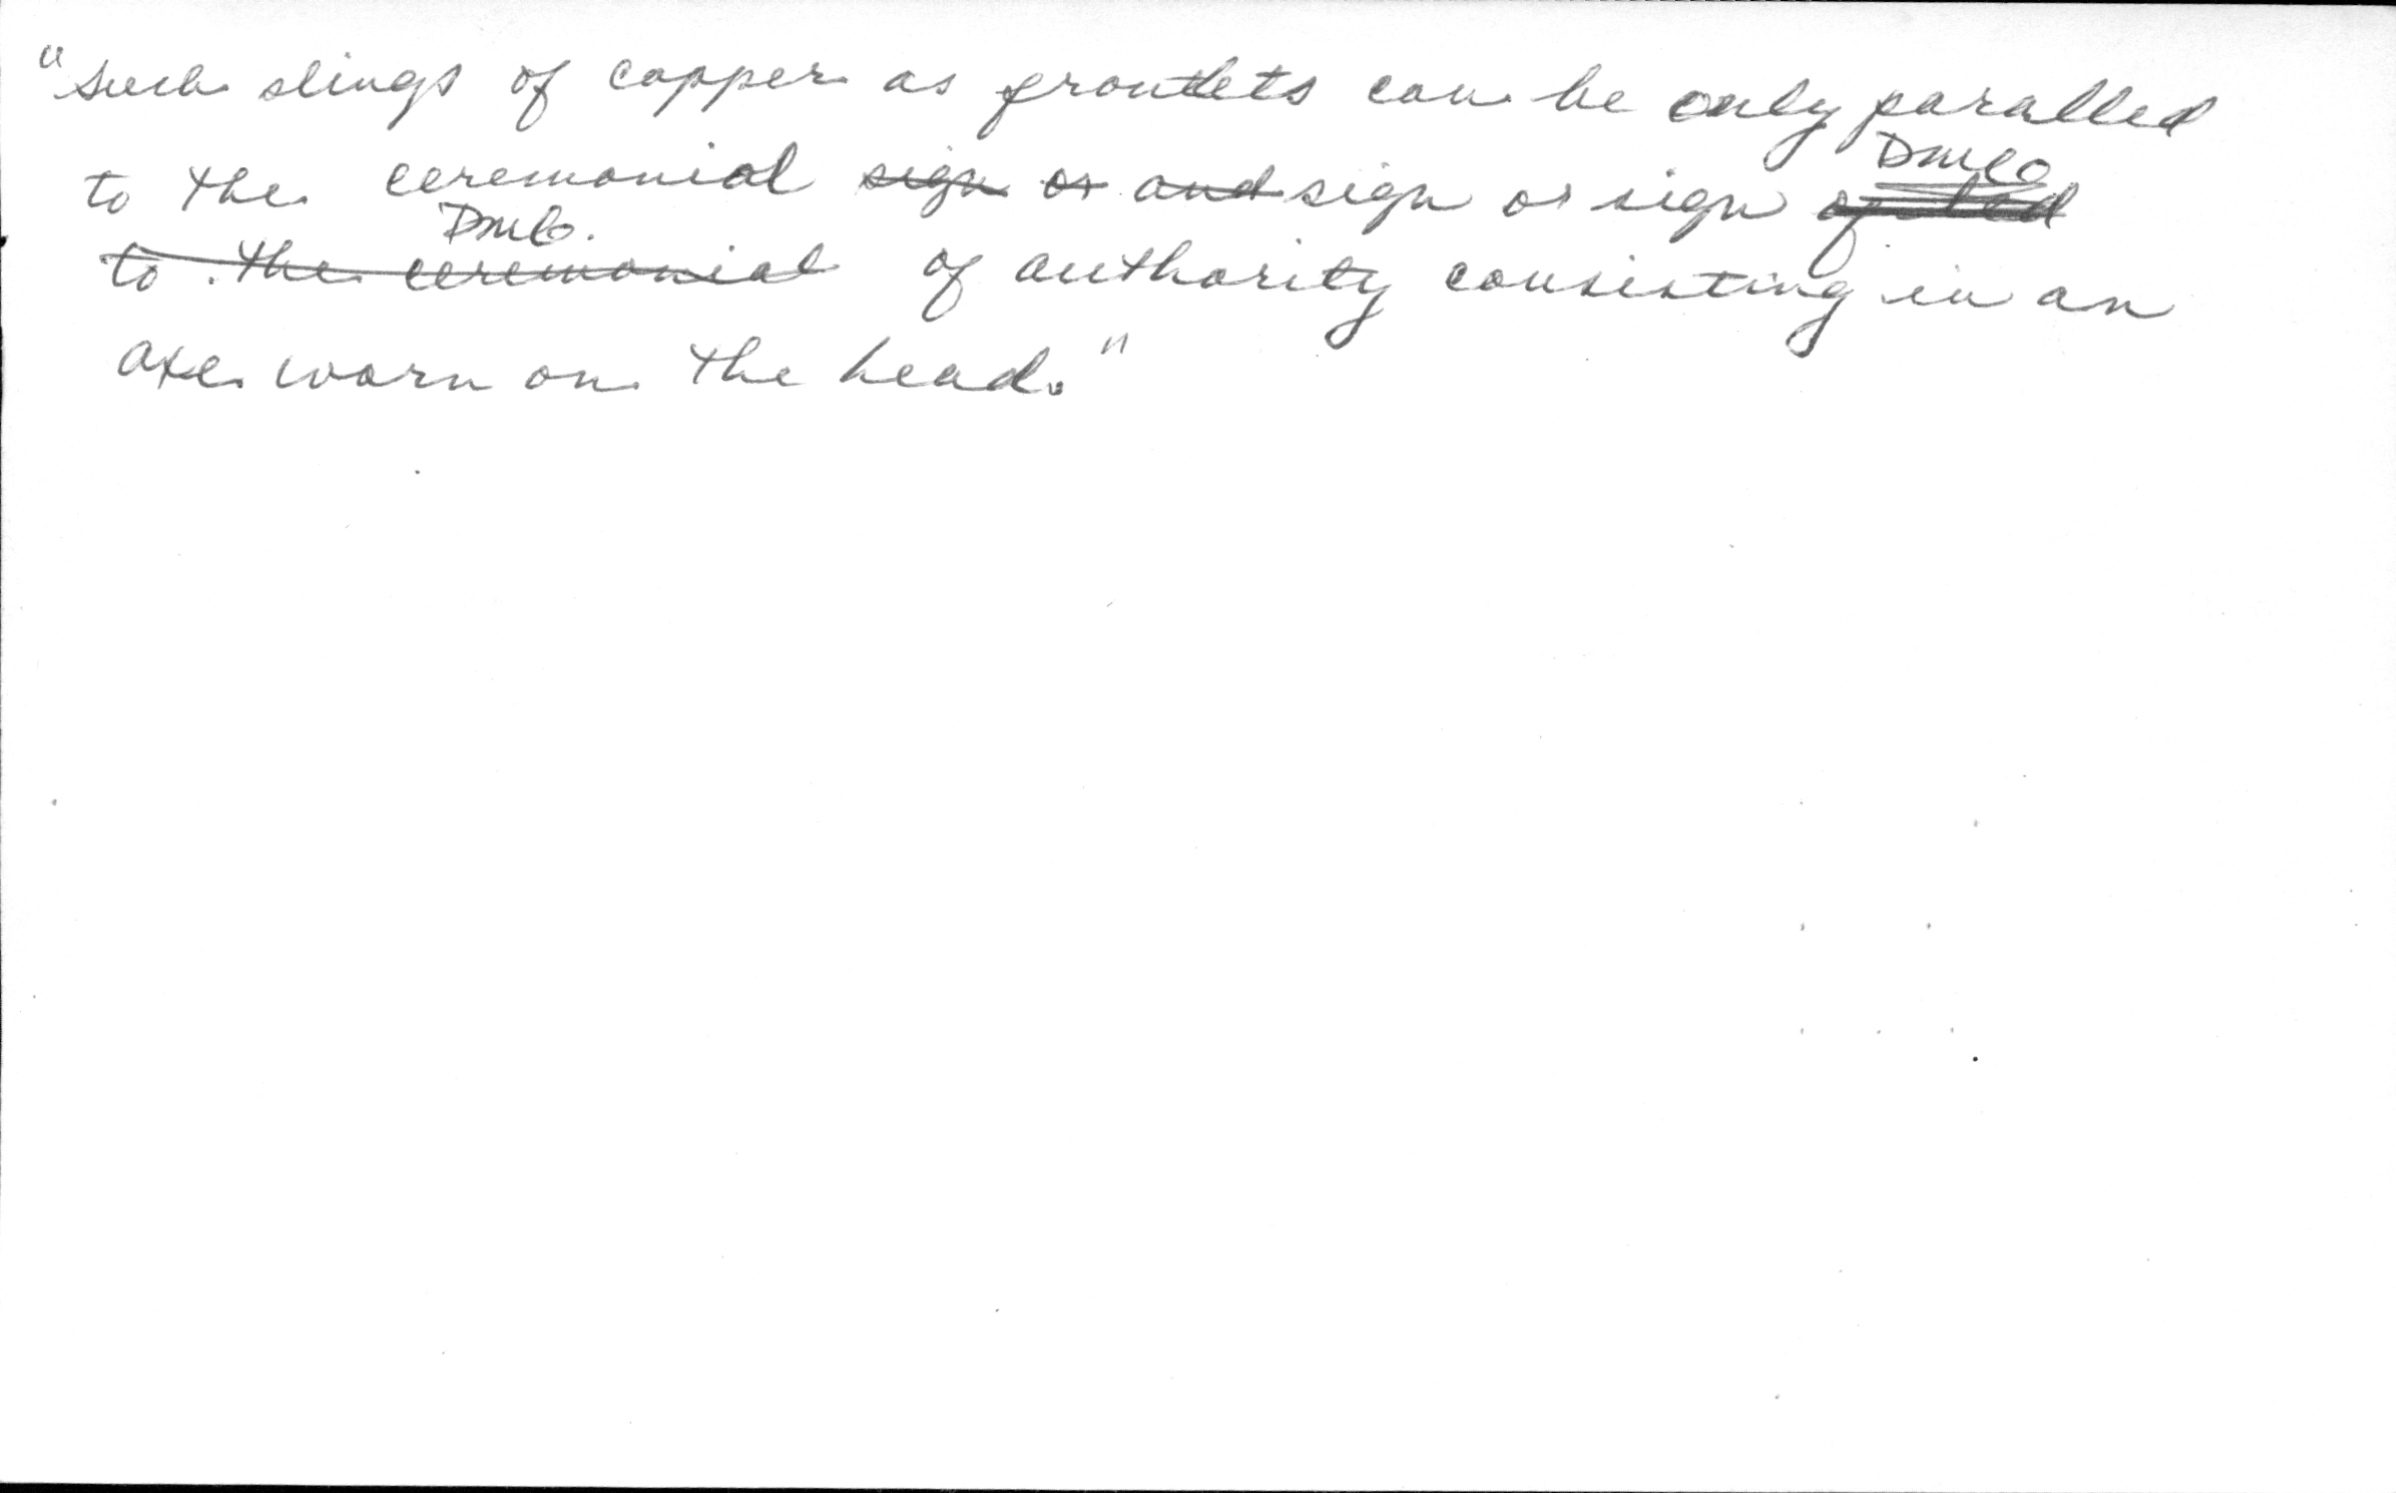 "such slings of copper as frontlets can be only paralled
to the ceremonial sign or and sign or sign
DMCo
DMCo.
to the ceremonial of authority consisting in an
axe worn on the head."